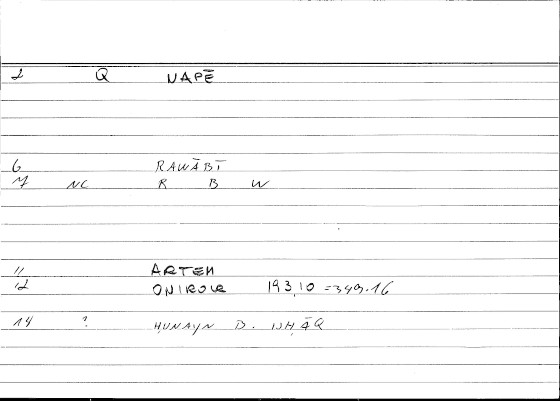 2 Q NAPĒ
6 RAWĀBṬ
7 NC R B W
11 ARTEM
12 ONIROCR 193,10 = 349.16
14 ? ḤUNAYN B. ISḤĀQ